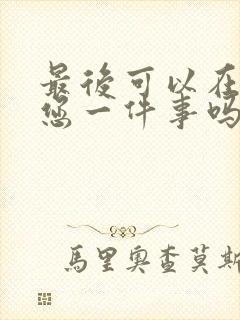 最後可以在
您一件事嗎
馬里奧查莫斯